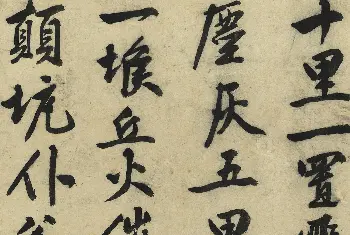 十里一置
塵灰五里
一堠兵火
顛坑仆